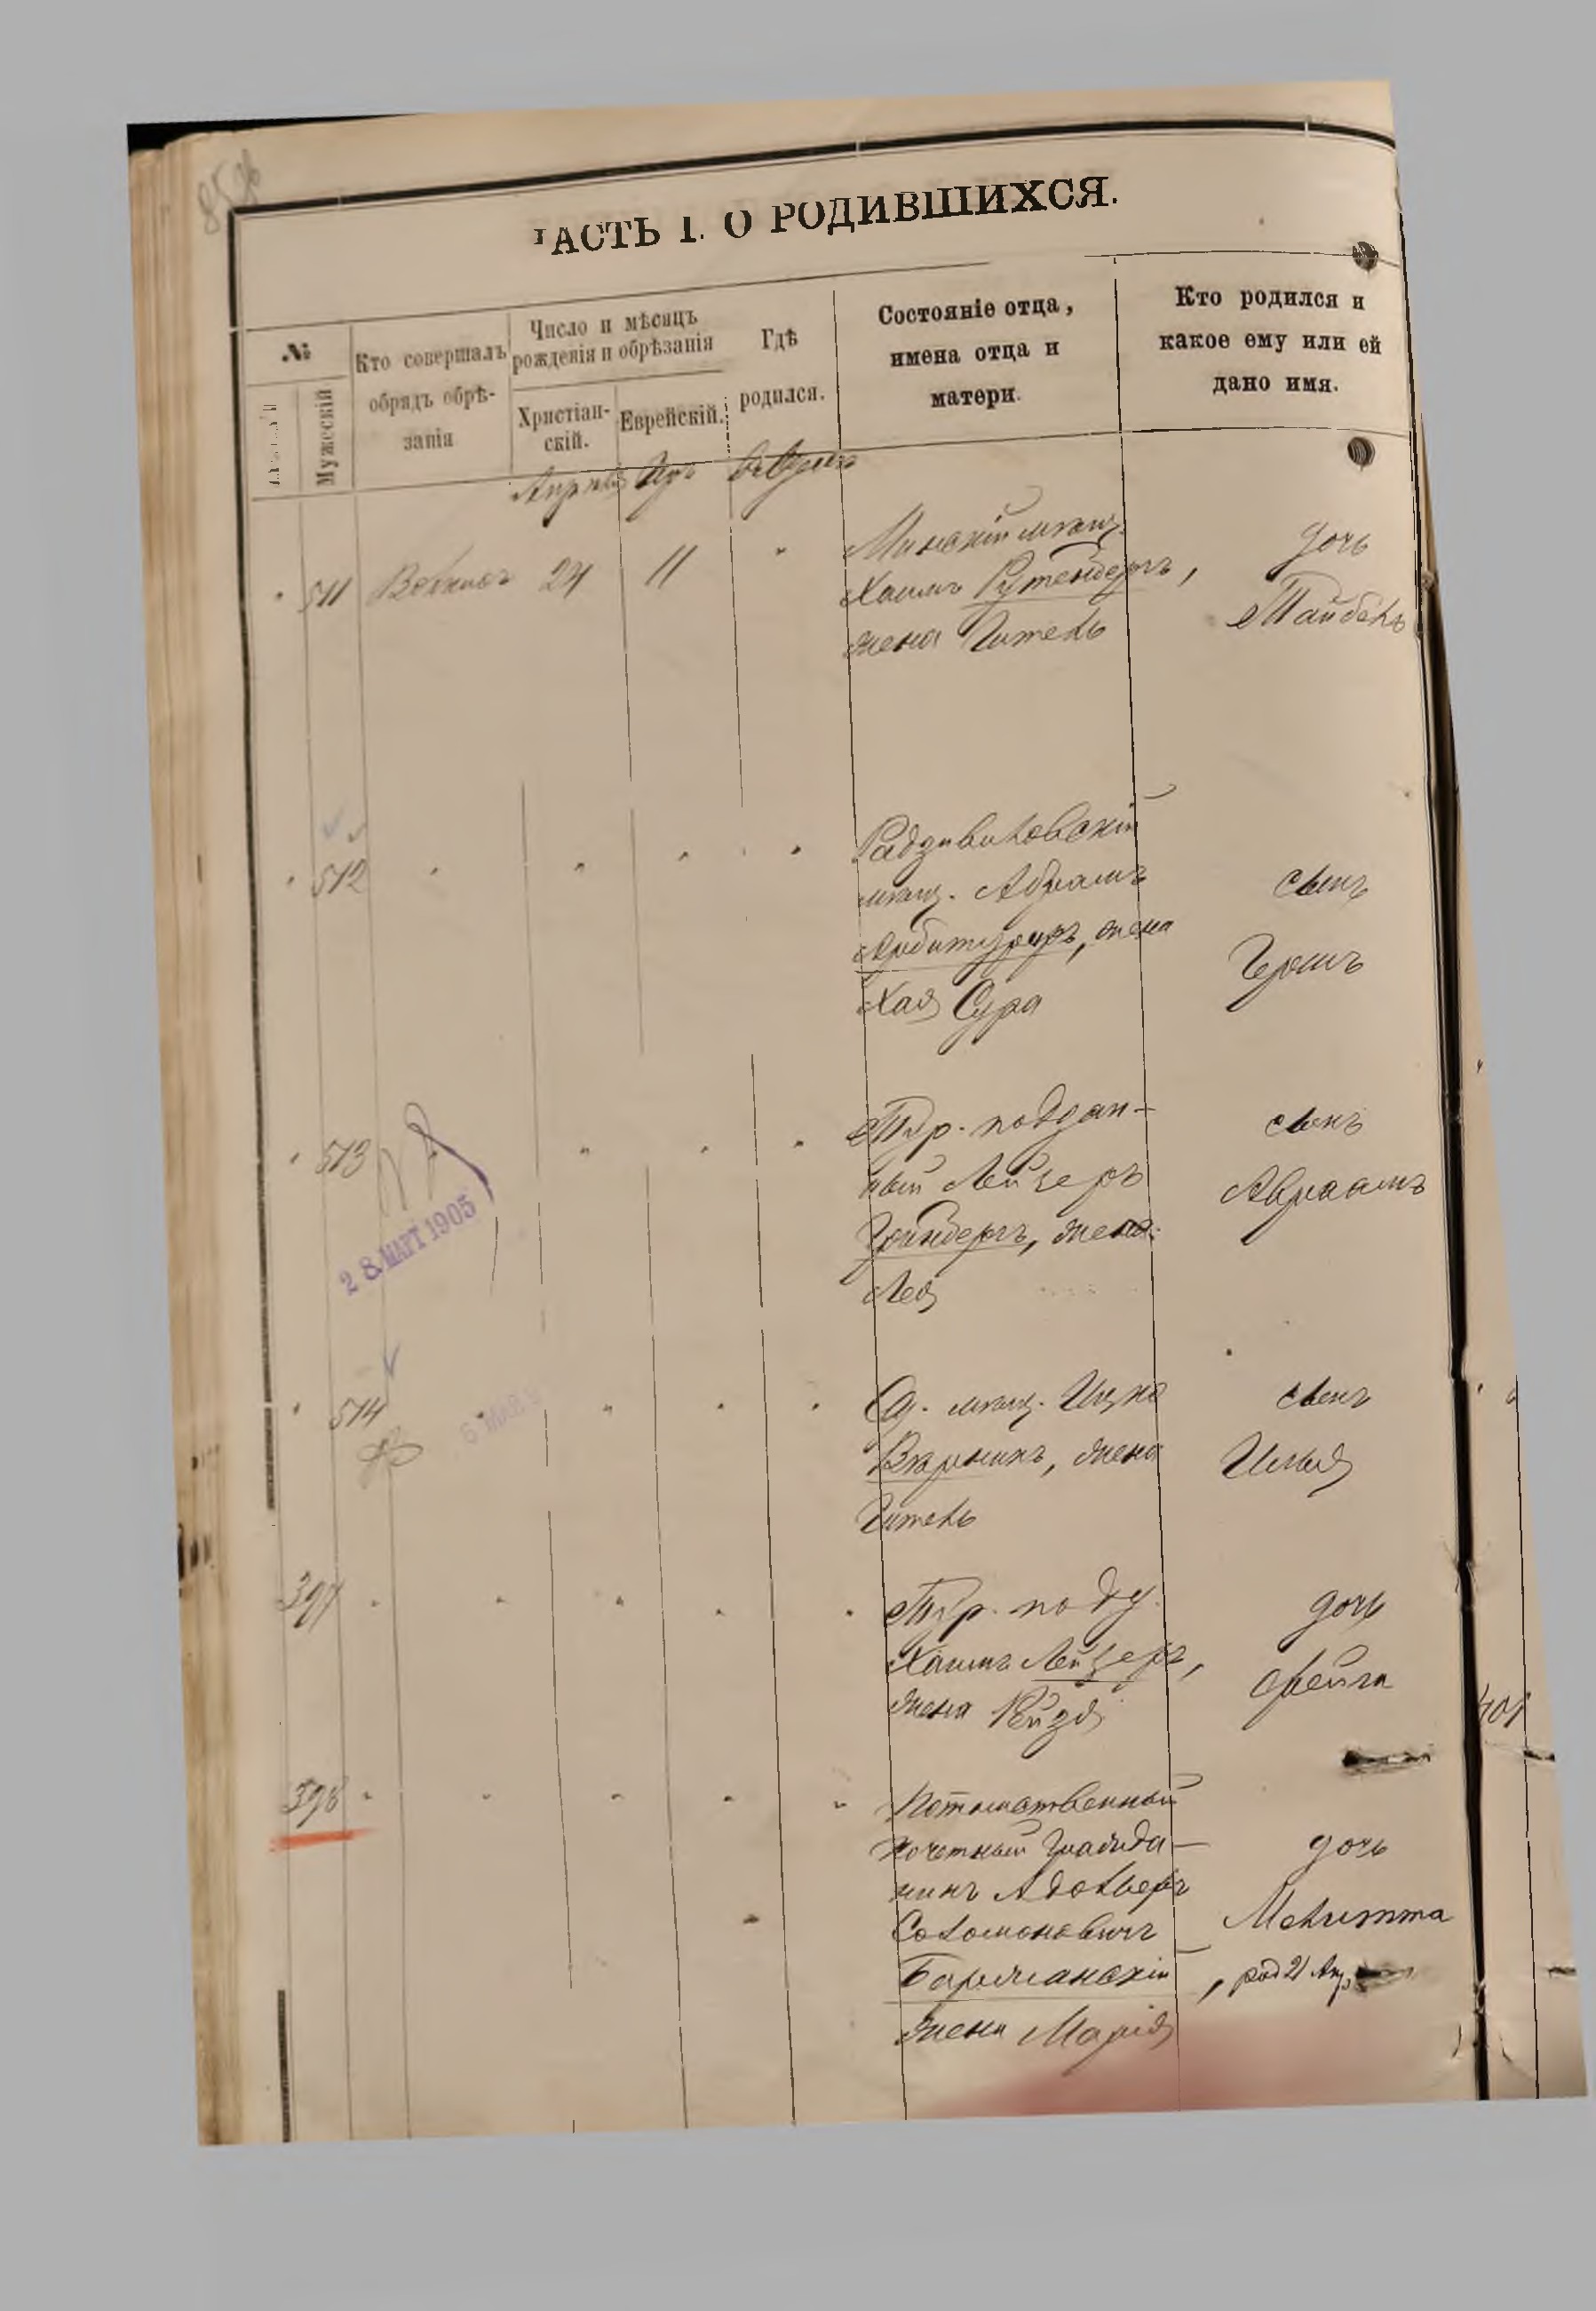 ЧАСТЬ I. О РОДИВШИХСЯ.
№
Мужескій
Кто совершалъ
обрядъ обрѣ-
занія
Число и мѣсяцъ
рожденія и обрѣзанія
Христіан-
скій.
Еврейскій.
Гдѣ
родился.
Состояніе отца,
имена отца и
матери.
Кто родился и
какое ему или ей
дано имя.
511 24 11
Минскій мѣщ.
Хаимъ Рутенбергъ,
жена Гитель
дочь
Тайбель
512
Радзивиловскій
мѣщ. Абрамъ
жена
Хая Сура
сынъ
Гершъ
513
28 МАРТ 1905
Тур. поддан-
ный Лейзеръ
Гринбергъ, жена
Лея
сынъ
Авраамъ
514
Од. мѣщ. Ицко
жена
Гитель
сынъ
Илья
397
Тур. подд.
Хаимъ Лейзеръ,
жена Рейзя
дочь
Фейга
398
Потомственный
почетный гражда-
нинъ Адольфъ
Соломоновичъ
жена Марія
дочь
Мелитта
, род 21 Апр
401